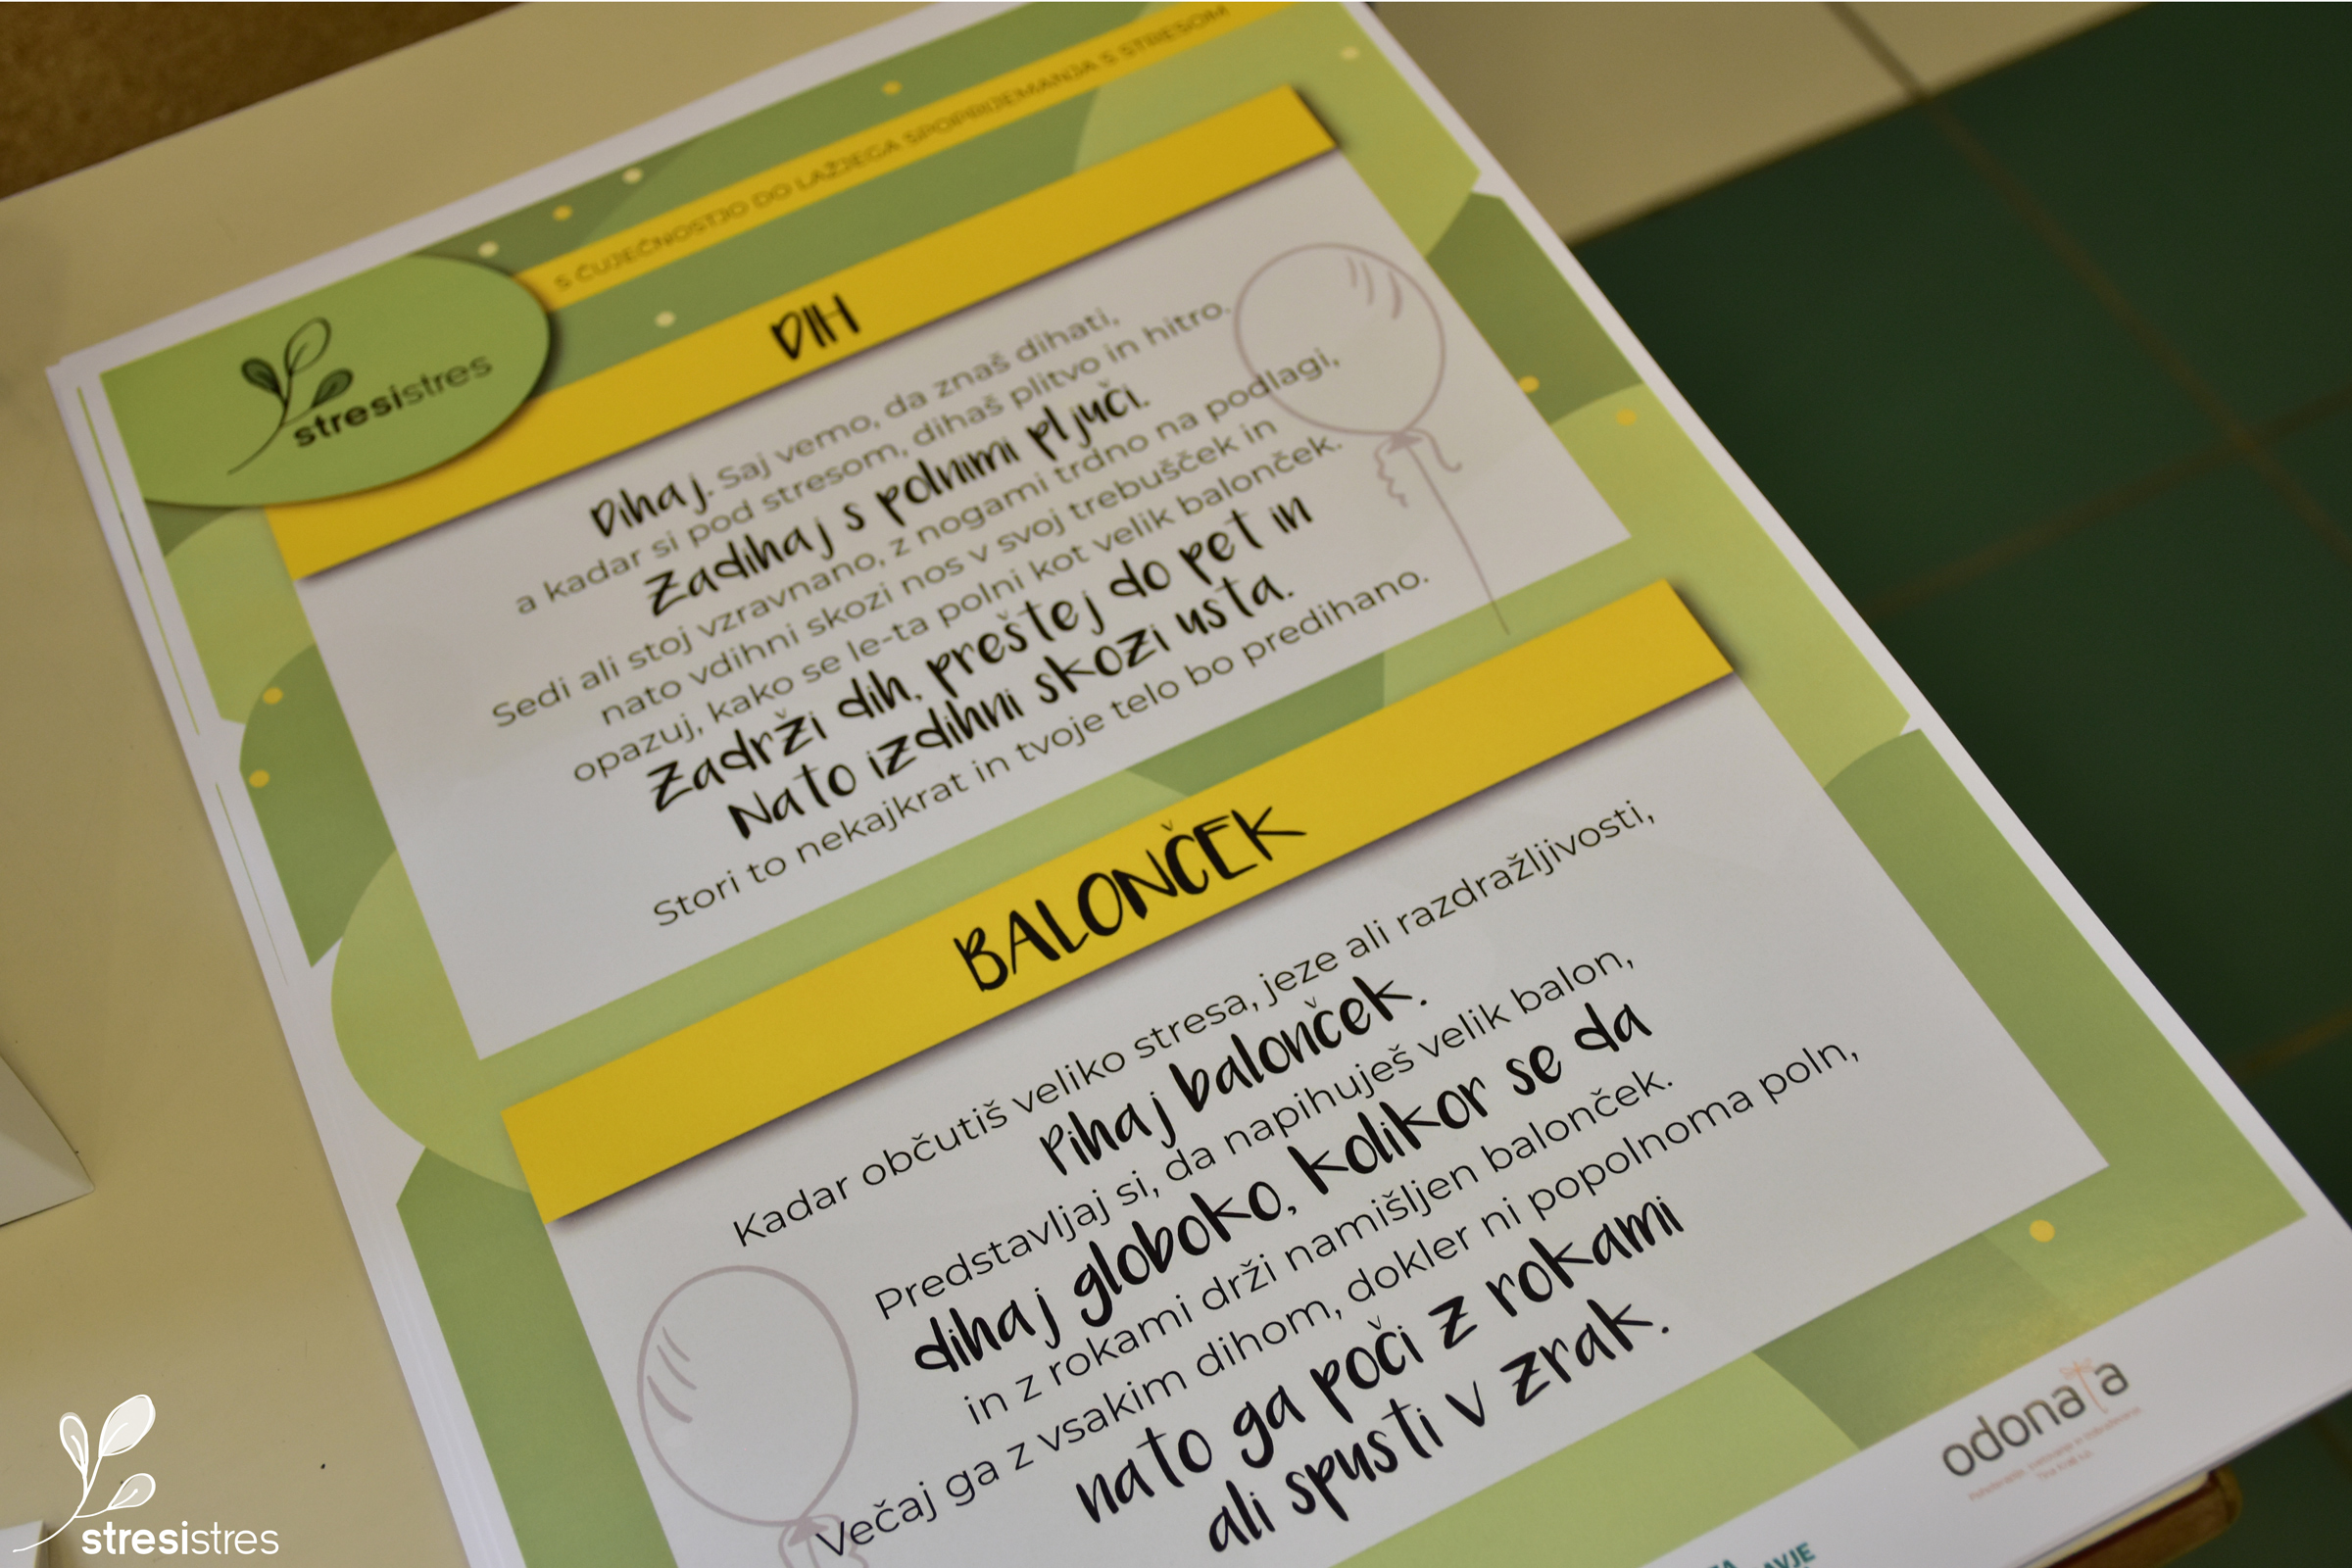 S ČUJEČNOSTJO DO LAŽJEGA SPOPRIJEMANJA S STRESOM
stresistres
DIH
Dihaj. Saj vemo, da znaš dihati,
a kadar si pod stresom, dihaš plitvo in hitro.
Zadihaj s polnimi pljuči.
Sedi ali stoj vzravnano, z nogami trdno na podlagi,
nato vdihni skozi nos v svoj trebušček in
opazuj, kako se le-ta polni kot velik balonček.
Zadrži dih, preštej do pet in
Nato izdihni skozi usta.
Stori to nekajkrat in tvoje telo bo predihano.
BALONČEK
Kadar občutiš veliko stresa, jeze ali razdražljivosti,
Pihaj balonček.
Predstavljaj si, da napihuješ velik balon,
dihaj globoko, kolikor se da
in z rokami drži namišljen balonček.
Večaj ga z vsakim dihom, dokler ni popolnoma poln,
nato ga poči z rokami
ali spusti v zrak.
odonata
stresistres